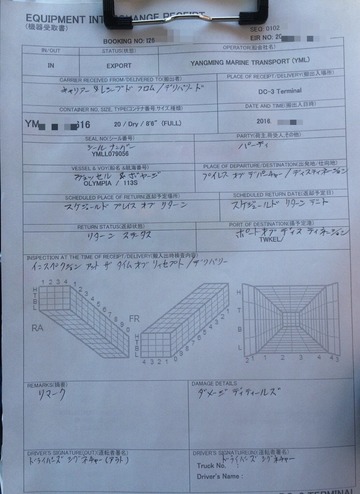 EQUIPMENT INTERCHANGE RECEIPT
(機器受取書)
SEQ: 0102
BOOKING NO: I25
EIR NO: 20
IN/OUT
STATUS(状態)
OPERATOR(船会社名)
IN
EXPORT
YANGMING MARINE TRANSPORT (YML)
CARRIER RECEIVED FROM/DELIVERED TO(搬出者)
PLACE OF RECEIPT/DELIVERY(搬出入場所)
キャリアー & レシーブド フロム / デリバリード
DC-3 Terminal
CONTAINER NO, SIZE, TYPE(コンテナ番号サイズ,種類)
DATE AND TIME(搬出入日時)
YM 616
20 / Dry / 8'6" (FULL)
2016
SEAL NO(シール番号)
PARTY(荷主,荷受人,その他)
シール ナンバー
YMLL079056
パーティ
VESSEL & VOY(船名&航海番号)
PLACE OF DEPARTURE/DESTINATION(出発地/仕向地)
ヴェッセル & ボヤージ
OLYMPIA / 113S
プレイス オブ デパーチャー / ディスティネーション
SCHEDULED PLACE OF RETURN(返却予定場所)
SCHEDULED RETURN DATE(返却予定日)
スケジュールド プレイス オブ リターン
スケジュールド リターン デート
RETURN STATUS(返却状態)
PORT OF DESTINATION(揚予定港)
リターン ステータス
ポート オブ ディスティネーション
TWKEL/
INSPECTION AT THE TIME OF RECEIPT/DELIVERY(搬入出時検査内容)
インスペクション アット ザ タイム オブ リィセプト / デリバリー
1 2 3 4
H
T
B
L
RA
FR
H
T
B
L
4 3 2 1
H
T
B
L
2 1
2 1
REMARKS(摘要)
DAMAGE DETAILS
リマーク
ダメージ ディティールズ
DRIVER'S SIGNATURE(OUT/運転者署名)
DRIVER'S SIGNATURE(IN/運転者署名)
ドライバーズ シグネチャー (アウト)
ドライバーズ シグネチャー
Truck No.
Driver's Name :
TERMINAL